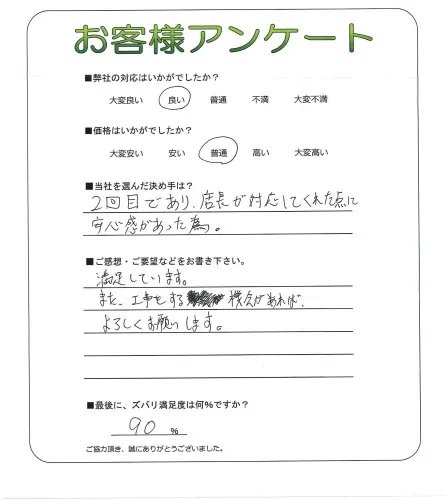 お客様アンケート
■弊社の対応はいかがでしたか？
大変良い 良い 普通 不満 大変不満
■価格はいかがでしたか？
大変安い 安い 普通 高い 大変高い
■当社を選んだ決め手は？
2回目であり、店長が対応してくれた点に
安心感があった為。
■ご感想・ご要望などをお書き下さい。
満足しています。
また、工事をする機会があれば、
よろしくお願いします。
■最後に、ズバリ満足度は何%ですか？
90 %
ご協力頂き、誠にありがとうございました。